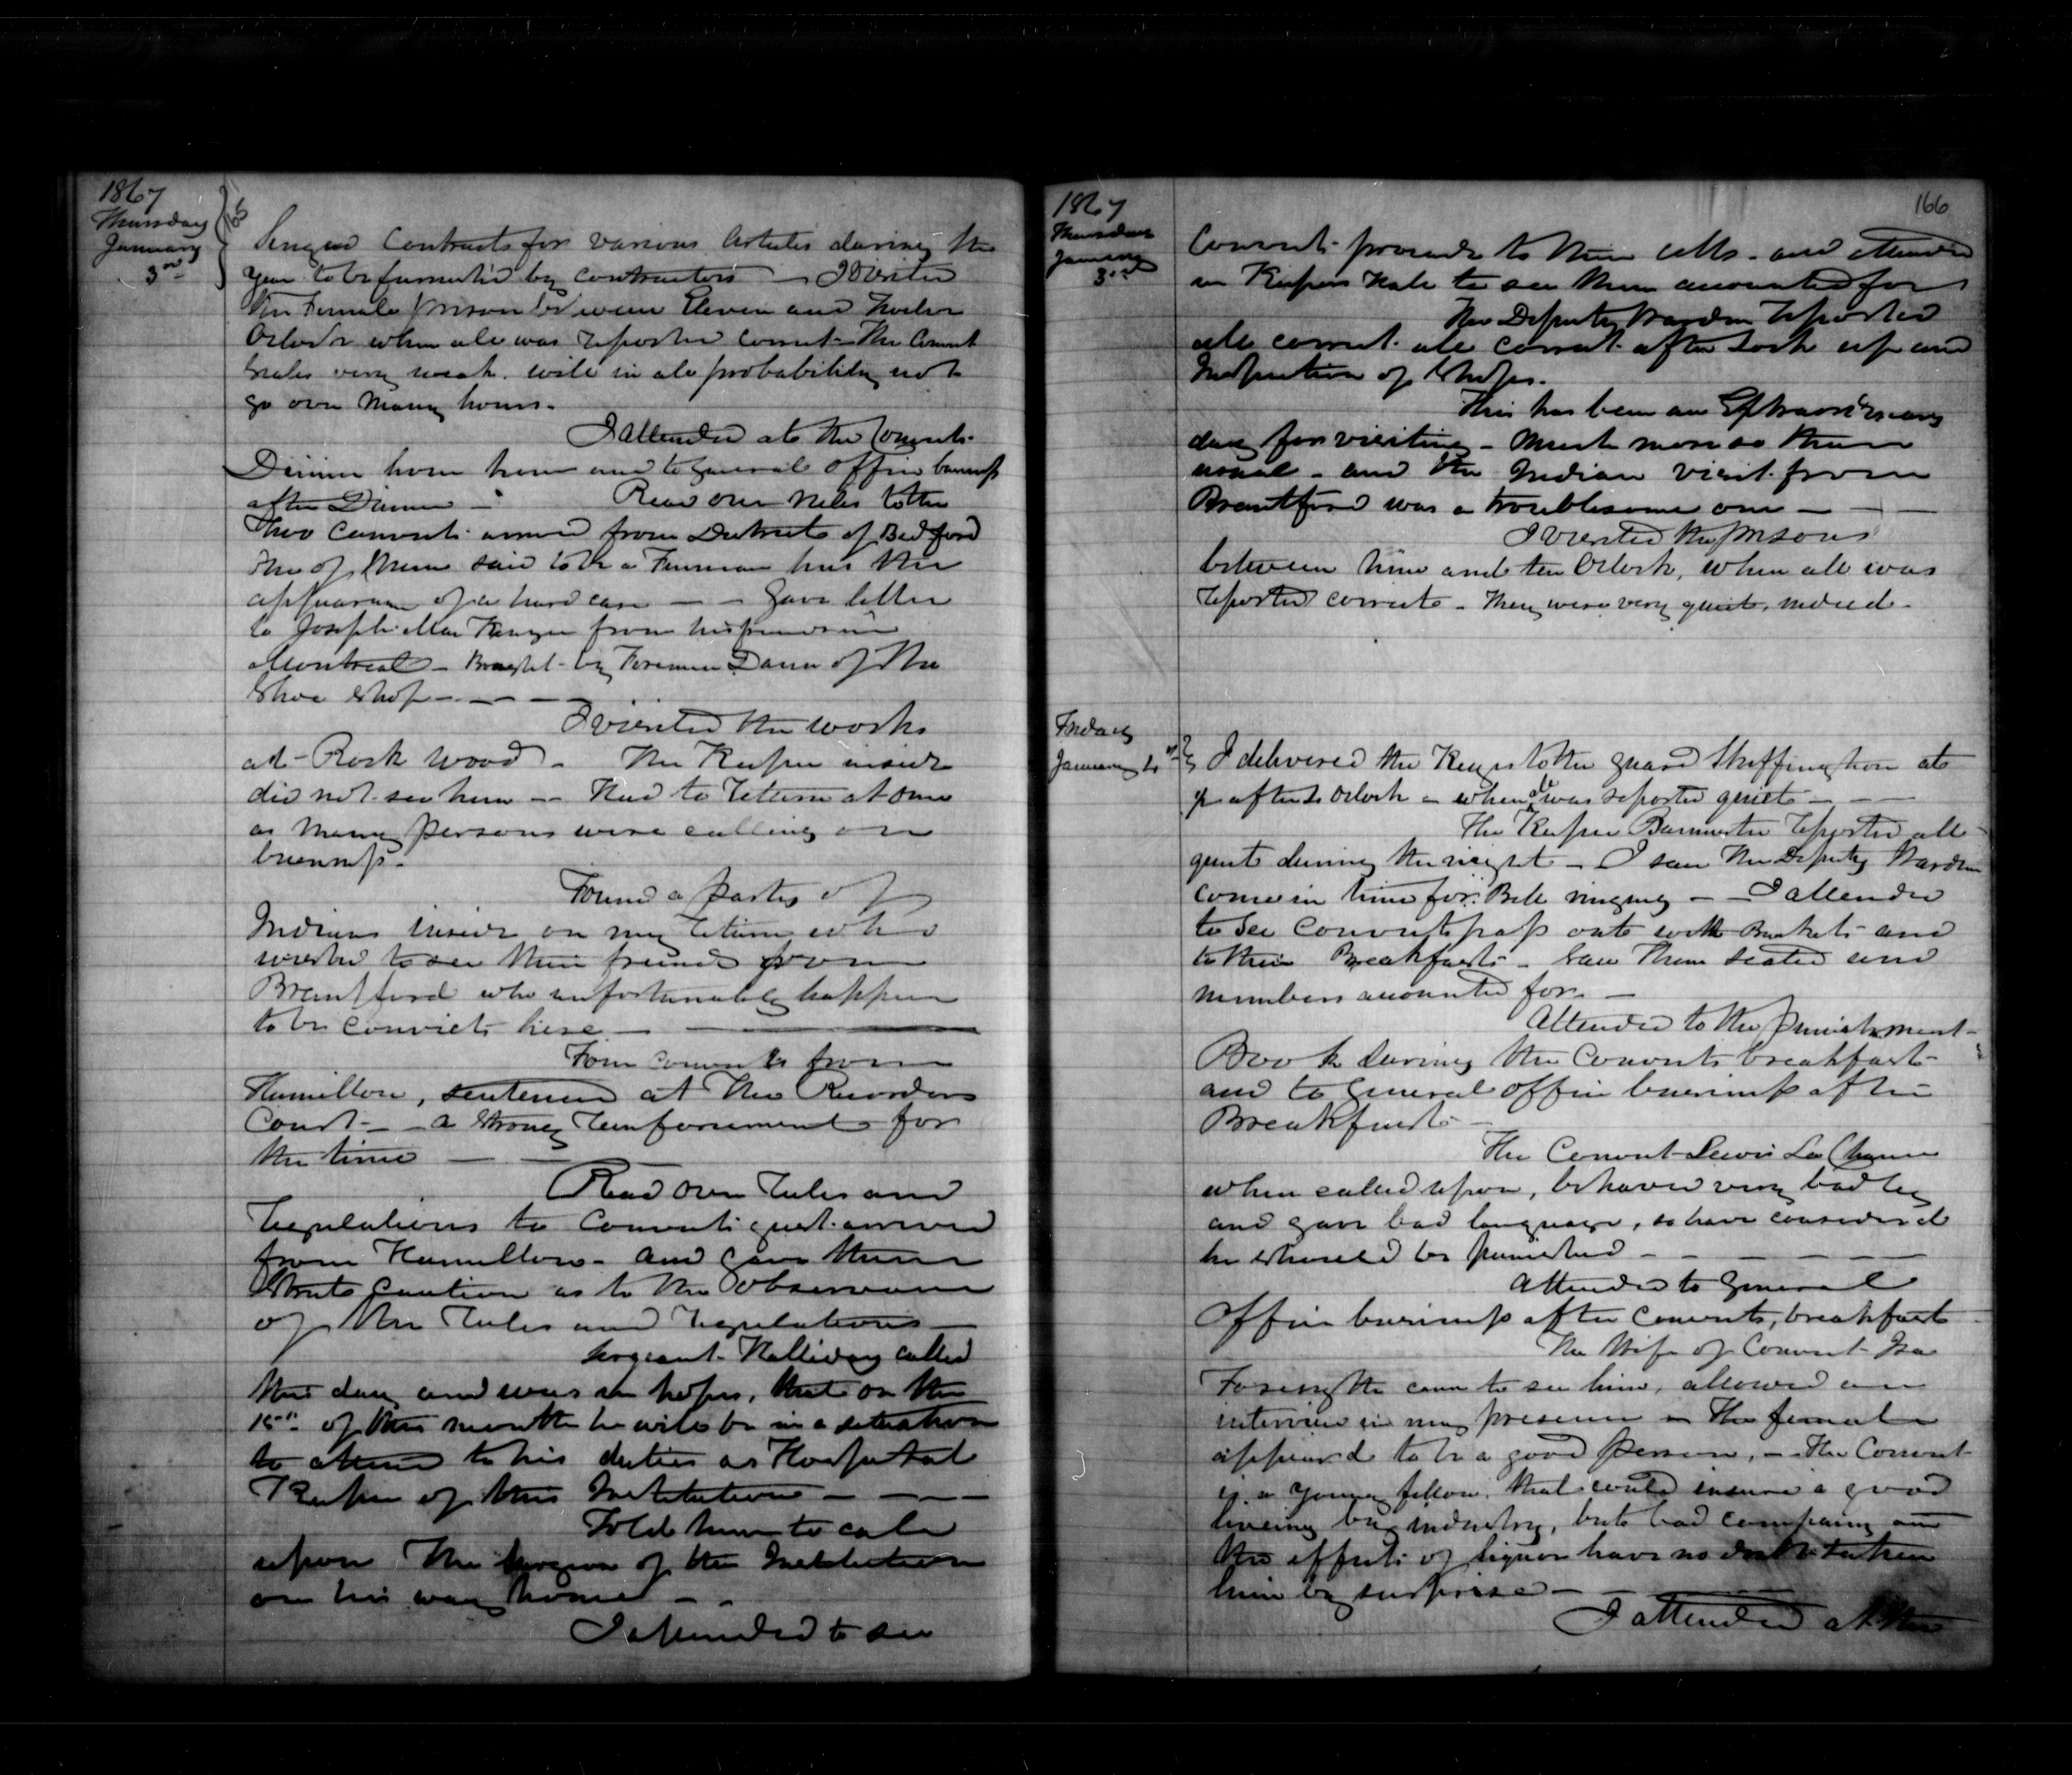 1867
Thursday
January
3rd
165
Signed Contracts for various Articles during the
year to be furnished by contractors — I visited
the Female prison between Eleven and Twelve
Oclock when all was reported correct — The Convict
very weak. will in all probability not
go over many hours.
I attended at the Convicts
Dinner hour and to General office business
after Dinner — Read over rules to the
two Convicts arrived from District of Bedford
One of them said to be a Fenian has the
appearance of a hard case — — Gave letter
to Joseph from his friends in
Montreal — Brought by Foreman Dann of the
Shoe Shop — — —
I visited the works
at Rock Wood. The Keeper inside
did not see him — Had to return at once
as many persons were calling on
business.
Found a party of
Indians inside on my return who
wished to see their friends from
Brantford who unfortunately happen
to be convicts here —
Four convicts from
Hamilton, sentenced at the Recorders
Court — a strong reinforcement for
the time —
Read over rules and
regulations to Convicts just arrived
from Hamilton — and gave them
strict caution as to the observance
of the rules and regulations —
Sergeant Halliday called
this day and was in hopes, that on the
15th of this month he will be in a situation
to attend to his duties as Hospital
Keeper of this Institution — — —
Told him to call
upon the Surgeon of the Institution
on his way home — —
I attended to see
1867
Thursday
January
3rd
166
Convicts proceed to their cells — and attended
in Keepers Hall to see them accounted for
The Deputy Warden reported
all correct. all correct after lock up and
Inspection of Shops.
This has been an Extraordinary
day for visiting — Much more so than
usual — and the Indian visit from
Brantford was a troublesome one — — —
I visited the prisons
between nine and ten Oclock, when all was
reported correct — They were very quiet, indeed.
Friday
January 4th
I delivered the Keys to the guard Skeffington at
p after 4 Oclock — when all was reported quiet — — —
The Keeper Bannister reported all
quiet during the night — I saw the Deputy Warden
come in time for Bell ringing — I attended
to see Convicts pass out with Buckets and
to their Breakfasts — Saw them seated and
numbers accounted for. —
Attended to the punishment
Book during the Convicts breakfast
and to General office business after
Breakfast —
The Convict Lewis La
when called upon, behaved very badly
and gave bad language, so have considered
he should be punished — — — — —
Attended to General
office business after Convicts, breakfast
The Wife of Convict Ira
Forsyth came to see him, allowed an
interview in my presence — The female
appeared to be a good person, — The Convict
is a young fellow, that could insure a good
living by industry, but bad company and
the effects of liquor have no doubt taken
him by surprise —
I attended at the